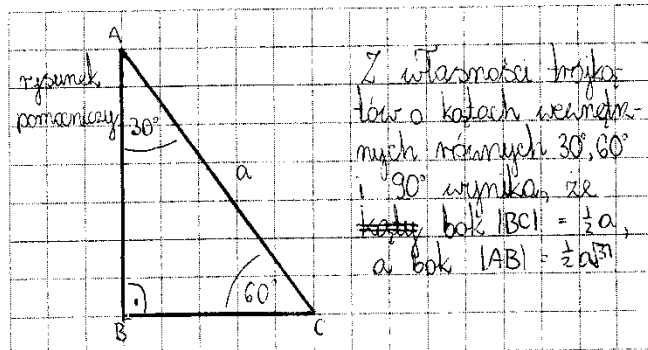 A
rysunek
pomocniczy
30°
a
60°
B
C
Z własności trójką-
tów o kątach wewnętrz-
nych równych 30°, 60°
i 90° wynika, że
bok |BC| = ½a,
a bok |AB| = ½a√3